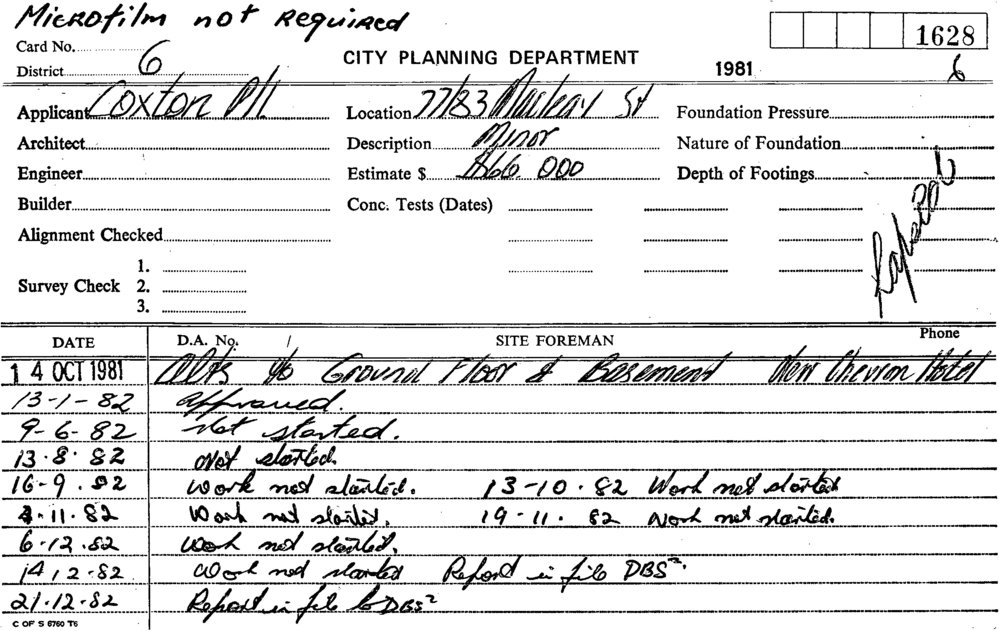 Microfilm not required
Card No. 1628
District 6 CITY PLANNING DEPARTMENT 1981 6
Applicant Coxton P/L Location 77/83 Macleay St Foundation Pressure
Architect Description Minor Nature of Foundation
Engineer Estimate $ $66 000 Depth of Footings
Builder Conc. Tests (Dates)
Alignment Checked
1.
Survey Check 2.
3.
DATE D.A. No. SITE FOREMAN Phone
14 OCT 1981 Alts to Ground Floor & Basement New Chevron Hotel
13-1-82 approved.
9-6-82 Not started.
13.8.82 Not started.
16-9.82 Work not started. 13-10.82 Work not started
11.82 Work not started. 19-11.82 Work not started.
6.12.82 Work not started.
14,12-82 Work not started Report in file DBS².
21.12.82 Report in file to DBS²
C OF S 6760 T6